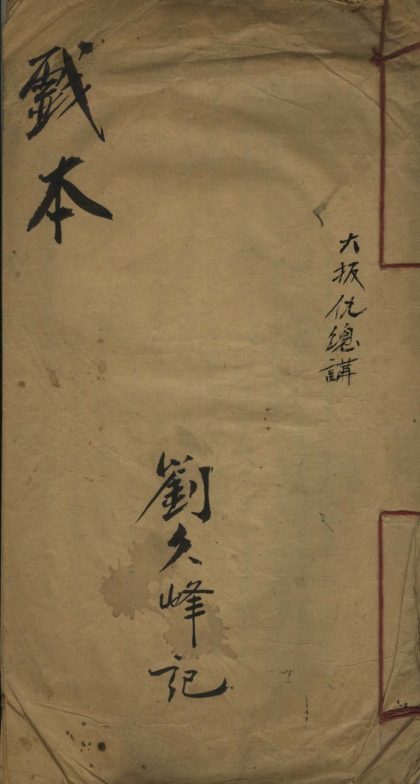 大报仇總講
劉久峰記
戲本